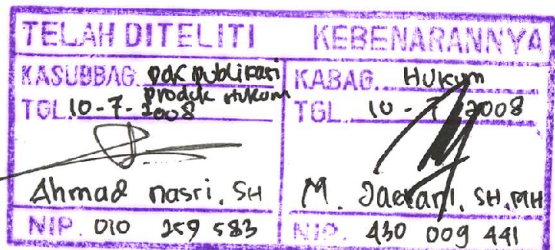 TELAH DITELITI KEBENARANNYA
KASUBBAG. dok publikasi
produk Hukum
TGL. 10-7-2008
Ahmad nasri, SH
NIP. 010 259 583
KABAG. Hukum
TGL. 10 - 7 2008
M. Jaelani, SH, MH
NIP. 430 009 441